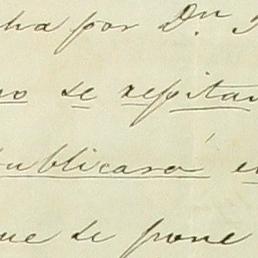 por Dn
se repitan
publicará
que se pone